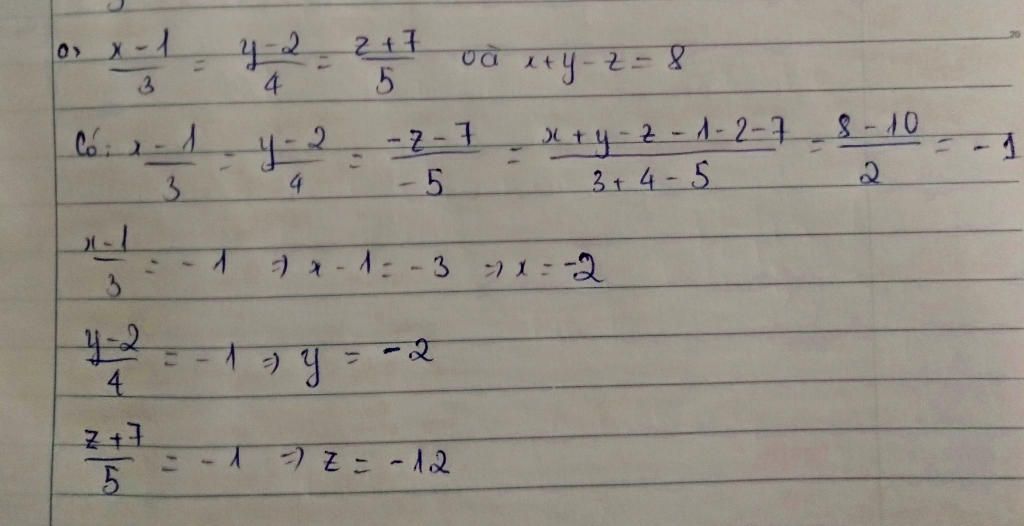 a, x-1/3 = y-2/4 = z+7/5 và x+y-z=8
Có: x-1/3 = y-2/4 = -z-7/-5 = x+y-z-1-2-7/3+4-5 = 8-10/2 = -1
x-1/3 = -1 => x-1=-3 => x=-2
y-2/4 = -1 => y = -2
z+7/5 = -1 => z = -12